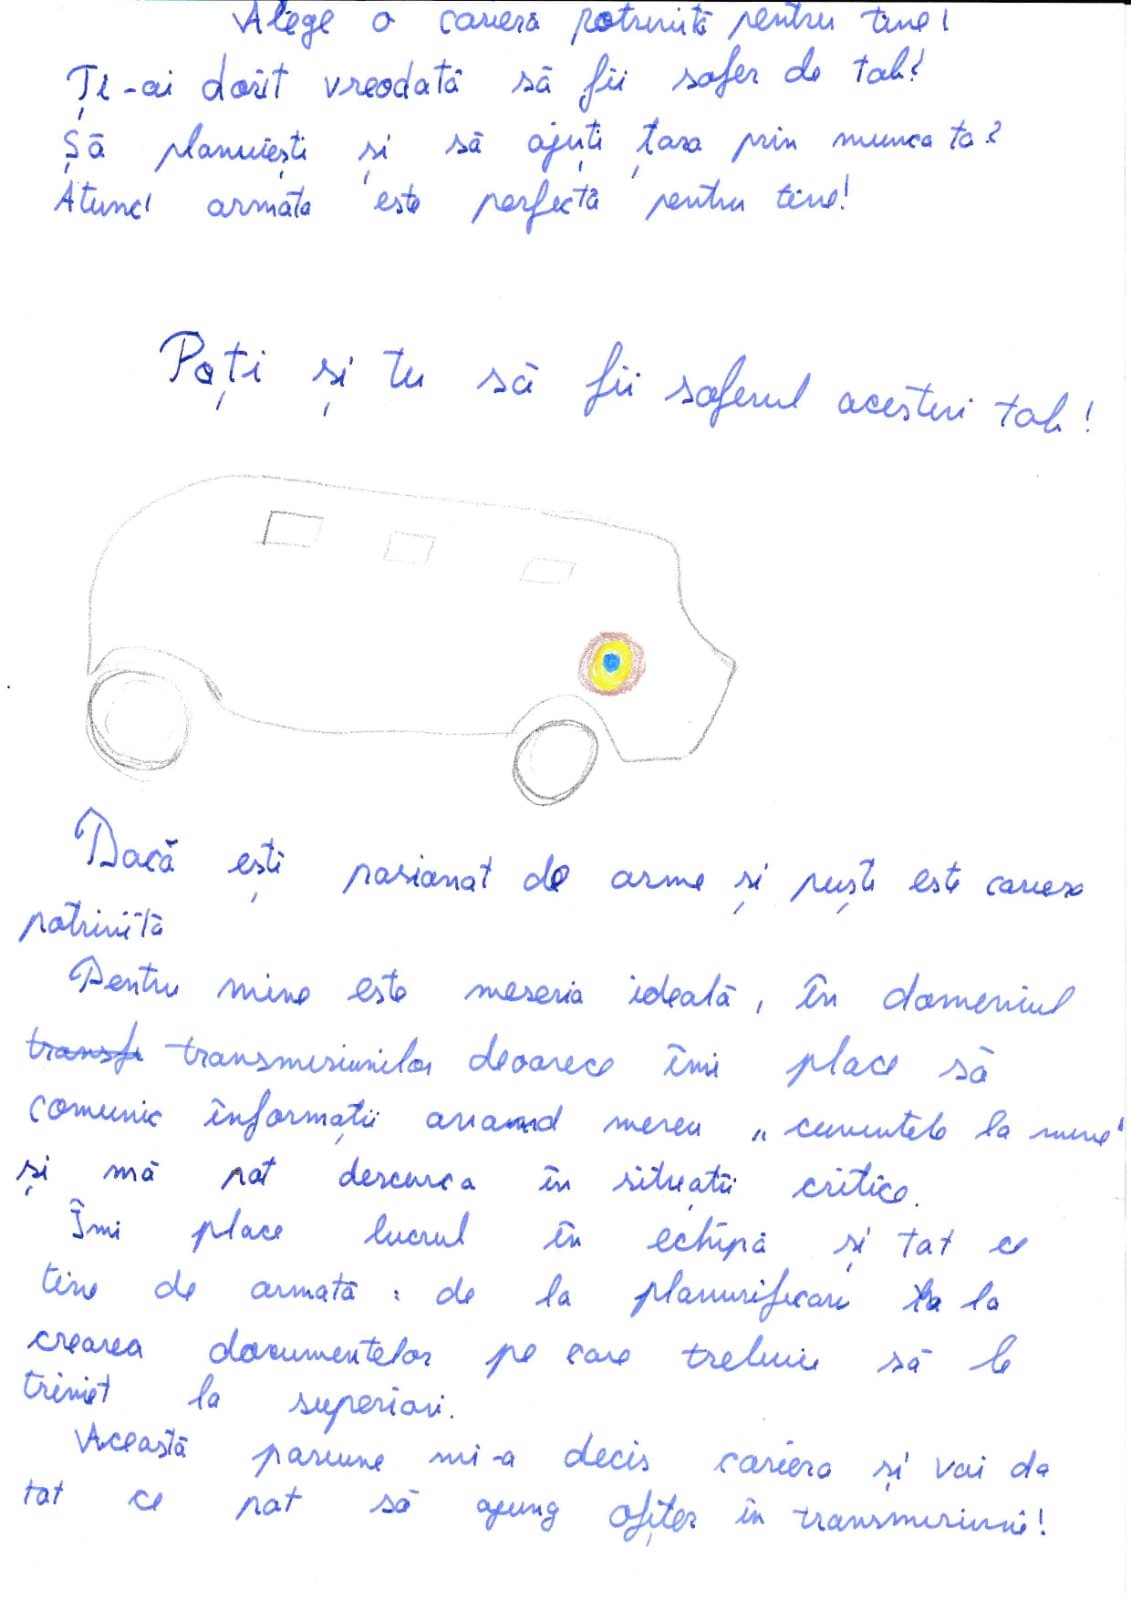 Alege o cariera potrivită pentru tine!
Ți-ai dorit vreodată să fii sofer de tab?
Să planuiești și să ajuți țara prin munca ta?
Atunci armata este perfectă pentru tine!
Poți și tu să fii soferul acestui tab!
Dacă ești pasionat de arme și puști este cariera
potrivită
Pentru mine este meseria ideală, în domeniul
transmisiunilor deoarece îmi place să
comunic informații avand mereu „cuvintele la mine"
și mă pot descurca în situații critice.
Îmi place lucrul în echipă și tot ce
tine de armată: de la planurificari la
crearea documentelor pe care trebuie să le
trimit la superiori.
Această pasiune mi-a decis cariera și voi da
tot ce pot să ajung ofițer în transmisiuni!